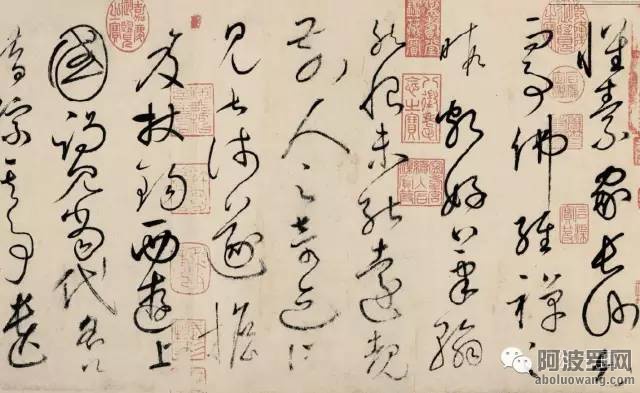 懷素家長沙幼而
事佛經禪之
暇頗好筆翰
然恨未能遠覩
前人之奇迹所
見甚淺遂擔
笈杖錫西遊上
國謁見當代名公
錯綜其事遺
嘉慶御覽之寶
八徵耄念之寶
阿波罗网
aboluowang.com